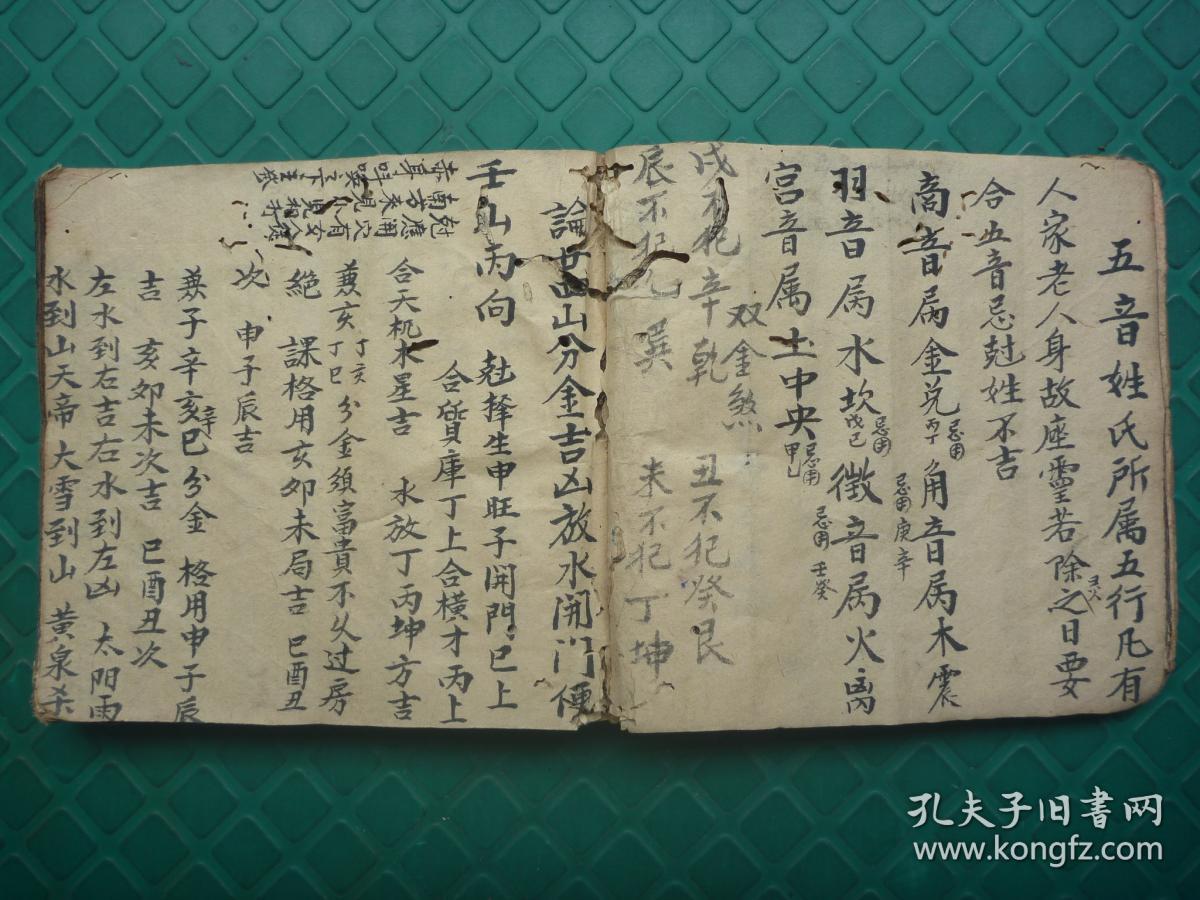 五音姓氏所属五行凡有
人家老人身故座靈若除之日要
灵火
合五音忌尅姓不吉
商音属金兑丙丁忌用角音属木震
忌用庚辛
羽音属水坎戊己忌用徵音属火离
忌用壬癸
宫音属土中央甲乙忌用
双金煞
戌不犯辛乾 丑不犯癸艮
辰不犯乙巽 未不犯丁坤
論廿四山分金吉凶放水開門便
壬山丙向 尅擇生申旺子開門巳上
合貨庫丁上合横才丙上
合天机水星吉 水放丁丙坤方吉
兼亥丁亥丁巳分金須富貴不久过房
絕 課格用亥卯未局吉 巳酉丑
次 申子辰吉
兼子辛亥辛巳分金 格用申子辰
吉 亥卯未次吉 巳酉丑次
左水到右吉右水到左凶 太阳雨
水到山天帝大雪到山 黄泉杀
尅應用穴有女人
南方来現